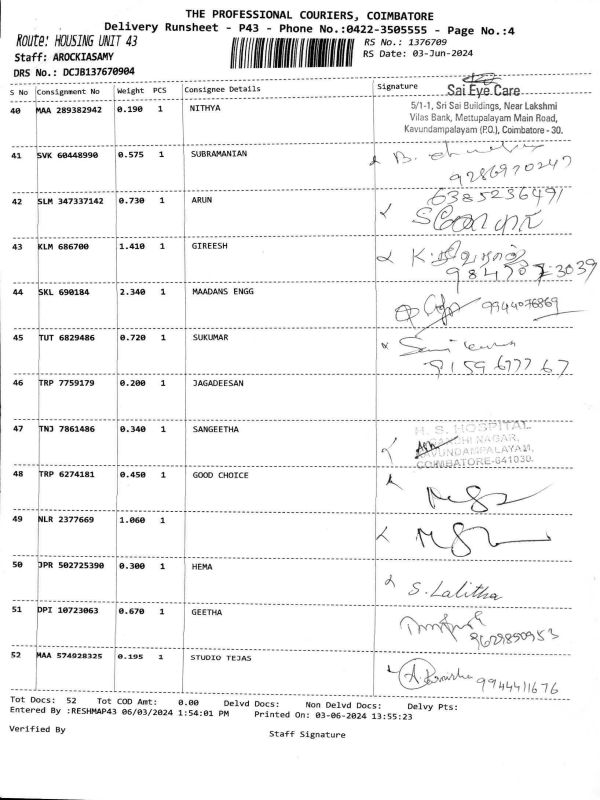 THE PROFESSIONAL COURIERS, COIMBATORE
Delivery Runsheet - P43 - Phone No.:0422-3505555 - Page No.:4
Route: HOUSING UNIT 43
RS No.: 1376709
Staff: AROCKIASAMY
RS Date: 03-Jun-2024
DRS No.: DCJB137670904
S No Consignment No Weight PCS Consignee Details Signature
Sai Eye Care
5/1-1, Sri Sai Buildings, Near Lakshmi
Vilas Bank, Mettupalayam Main Road,
Kavundampalayam (P.O.), Coimbatore - 30.
40 MAA 289382942 0.190 1 NITHYA
41 SVK 60448990 0.575 1 SUBRAMANIAN
B.
9286970247
42 SLM 347337142 0.730 1 ARUN
6385236491
43 KLM 686700 1.410 1 GIREESH
44 SKL 690184 2.340 1 MAADANS ENGG
9944076869
45 TUT 6829486 0.720 1 SUKUMAR
46 TRP 7759179 0.200 1 JAGADEESAN
47 TNJ 7861486 0.340 1 SANGEETHA
H. S. HOSPITAL
GANDHI NAGAR,
KAVUNDAMPALAYAM,
COIMBATORE-641030.
48 TRP 6274181 0.450 1 GOOD CHOICE
49 NLR 2377669 1.060 1
50 JPR 502725390 0.300 1 HEMA
S. Lalitha
51 DPI 10723063 0.670 1 GEETHA
9629890953
52 MAA 574928325 0.195 1 STUDIO TEJAS
9944411676
Tot Docs: 52 Tot COD Amt: 0.00 Delvd Docs: Non Delvd Docs: Delvy Pts:
Entered By :RESHMAP43 06/03/2024 1:54:01 PM Printed On: 03-06-2024 13:55:23
Verified By Staff Signature